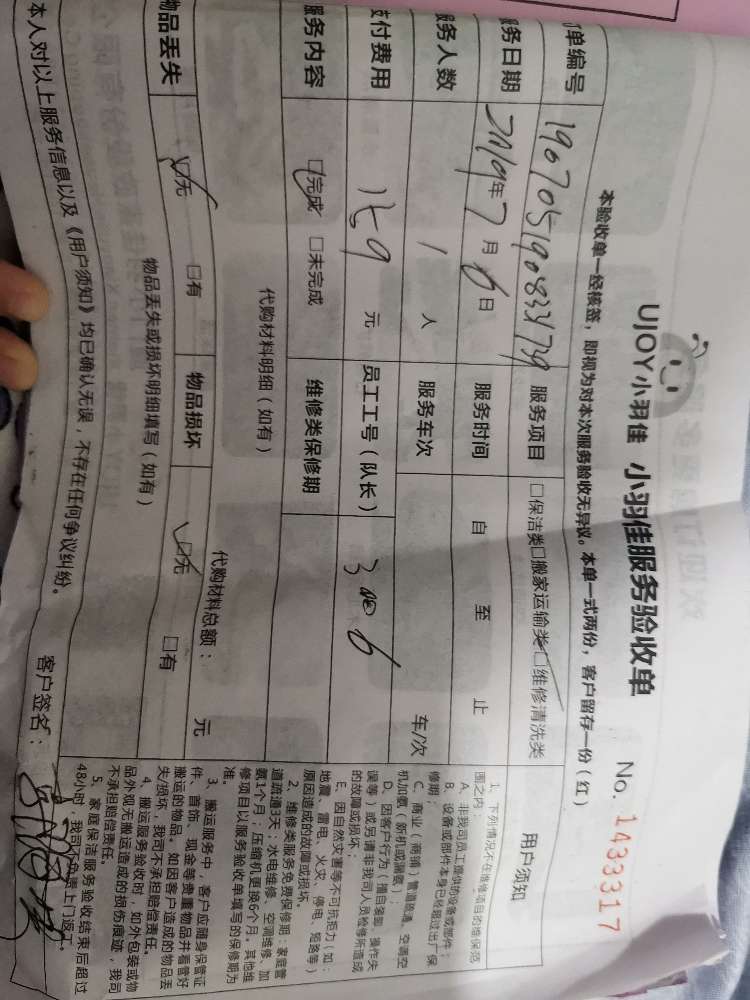 UJOY小羽佳 小羽佳服务验收单
No. 1433317
本验收单一经核签，即视为对本次服务验收无异议。本单一式两份，客户留存一份（红）
单编号 19070519083479 服务项目 □保洁类□搬家运输类□维修清洗类
服务日期 2019年7月6日 服务时间 自 至 止
服务人数 1 人 服务车次 车/次
支付费用 159 元 员工工号（队长） 3006
服务内容 □完成 □未完成 维修类保修期
代购材料明细（如有）
代购材料总额： 元
物品丢失 □无 □有 物品损坏 □无 □有
物品丢失或损坏明细填写（如有）
本人对以上服务信息以及《用户须知》均已确认无误，不存在任何争议纠纷。
客户签名：
用户须知
1、下列情况不在维修项目的维保范
围之内：
A、非我司员工提供的设备或部件；
B、设备或部件本身已经超过出厂保
修期；
C、商业（商铺）管道疏通、空调空
机加氨（新机或漏氨）；
D、因客户行为（擅自装卸、操作失
误等）或另请非我司人员验修所造成
的故障或损坏；
E、因自然灾害等不可抗拒力（如：
地震、雷电、火灾、停电、短路等）
原因造成的故障或损坏。
2、维修类服务免费保修期：家庭管
道疏通3天；水电维修、空调维修、加
氨1个月；压缩机更换6个月。其他维
修项目以服务验收单填写的保修期为
准。
3、搬运服务中，客户应随身保管证
件、首饰、现金等贵重物品并看管好
搬运的物品。如因客户造成的物品丢
失/损坏，我司不承担赔偿责任。
4、搬运服务验收时，如外包装或物
品外观无搬运造成的损伤痕迹，我司
不承担赔偿责任。
5、家庭保洁服务验收结束后超过
48小时，我司不负责上门返工。